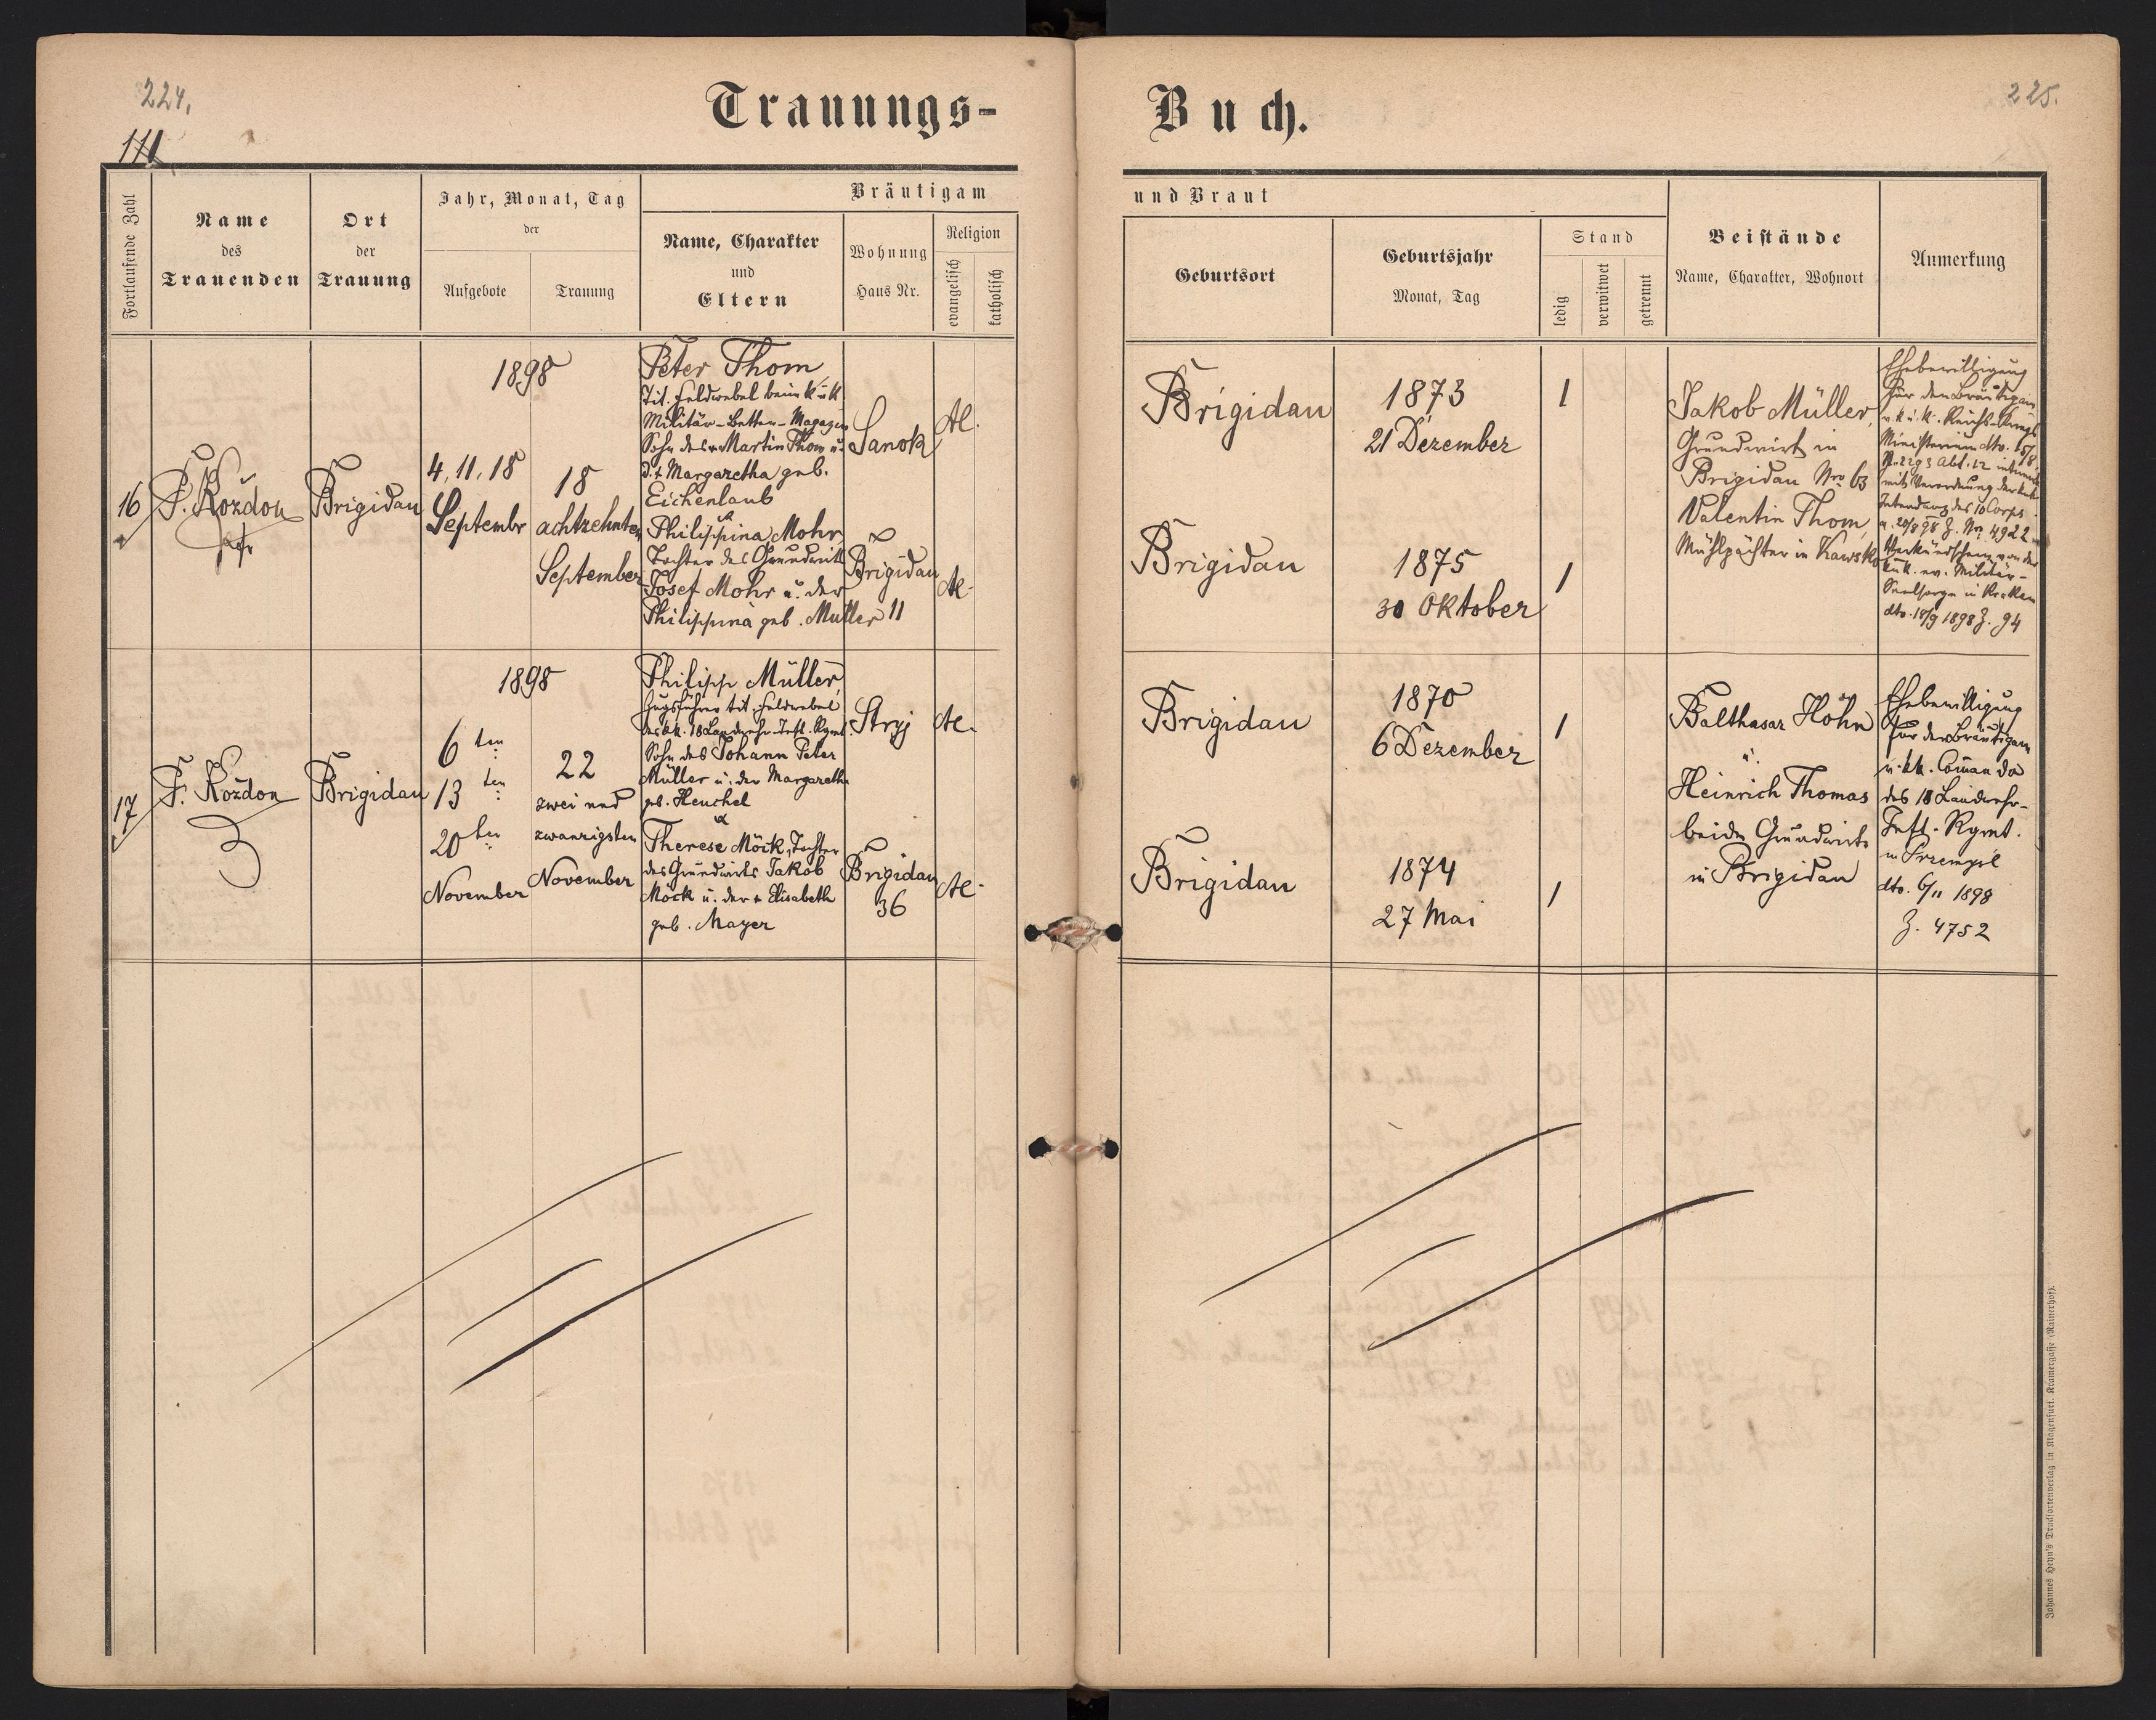 224.
111
Trauungs-
Fortlaufende Zahl
Name
des
Trauenden
Ort
der
Trauung
Jahr, Monat, Tag
der
Aufgebote
Trauung
Bräutigam
Name, Charakter
und
Eltern
Wohnung
Haus Nr.
Religion
evangelisch
katholisch
16
F. Kozdon
Pfr
Brigidau
1898
4, 11, 18
Septembr
18
achtzehnten
September
Peter Thom
Tit. Feldwebel beim k u k
Militär-Betten-Magazin
Sohn des + Martin Thom u.
d. + Margaretha geb.
Eichenlaub
&
Philippina Mohr
Tochter des Grundwirts
Josef Mohr u. der
Philippina geb. Müller
Sanok
Brigidau
11
AC.
AC.
17
F. Kozdon
Brigidau
1898
6 ten
13 ten
20 ten
November
22
zwei und
zwanzigsten
November
Philipp Müller,
Zugsführer tit. Feldwebel
des kk. 18 Landwehr-Inft. Rgmt.
Sohn des Johann Peter
Müller u. der Margaretha
geb. Henchel
&
Therese Möck, Tochter
des Grundwirts Jakob
Möck u. der + Elisabeth
geb. Mayer
Stryj
Brigidau
36
AC.
AC.
225.
Buch.
und Braut
Geburtsort
Geburtsjahr
Monat, Tag
Stand
ledig
verwitwet
getrennt
Beistände
Name, Charakter, Wohnort
Anmerkung
Brigidau
1873
21 Dezember
1
Brigidau
1875
30 Oktober
1
Jakob Müller,
Grundwirt in
Brigidau Nro 63
Valentin Thom,
Mühlpächter in Kawsko
Ehebewilligung
für den Bräutigam
v. k. u. k. Reichs-Kriegs
Ministerium dto. 15/8
N. 2293 Abt. 12 intimirt
mit Verordnung der kuk
Intendanz des 10 Corps
v. 20/8 98 Z. Nr. 4922
Verkündschein von der
kuk. ev. Militär-
Seelsorge in Krakau
dto. 18/9 1898 Z. 94
Brigidau
1870
6 Dezember
1
Brigidau
1874
27 Mai
1
Balthasar Höhn
u.
Heinrich Thomas
beide Grundwirte
in Brigidau
Ehebewilligung
für den Bräutigam
v. kk. Coman do
des 18 Landwehr-
Inft. Rgmt.
in Przemysl
dto. 6/11 1898
Z. 4752
Johannes Heyn's Drucksortenverlag in Klagenfurt, Kramergasse (Rainerhof).